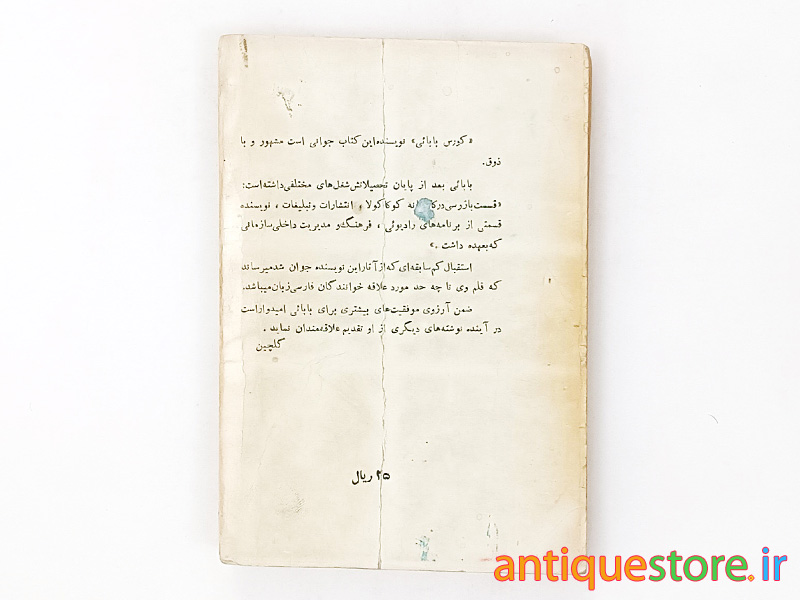 «کورس بابائی» نویسنده این کتاب جوانی است مشهور و با
ذوق.
بابائی بعد از پایان تحصیلاتش شغل‌های مختلفی داشته است:
«قسمت بازرسی در کوکاکولا، انتشارات و تبلیغات، نویسنده
قسمتی از برنامه‌های رادیوئی، فرهنگ و مدیریت داخلی سازمانی
که بعهده داشت.»
استقبال کم سابقه‌ای که از آثار این نویسنده جوان شد میرساند
که قلم وی تا چه حد مورد علاقه خوانندگان فارسی زبان میباشد.
ضمن آرزوی موفقیت‌های بیشتری برای بابائی امیدوار است
در آینده نوشته‌های دیگری از او تقدیم علاقه‌مندان نماید.
گلچین
۲۵ ریال
antiquestore.ir